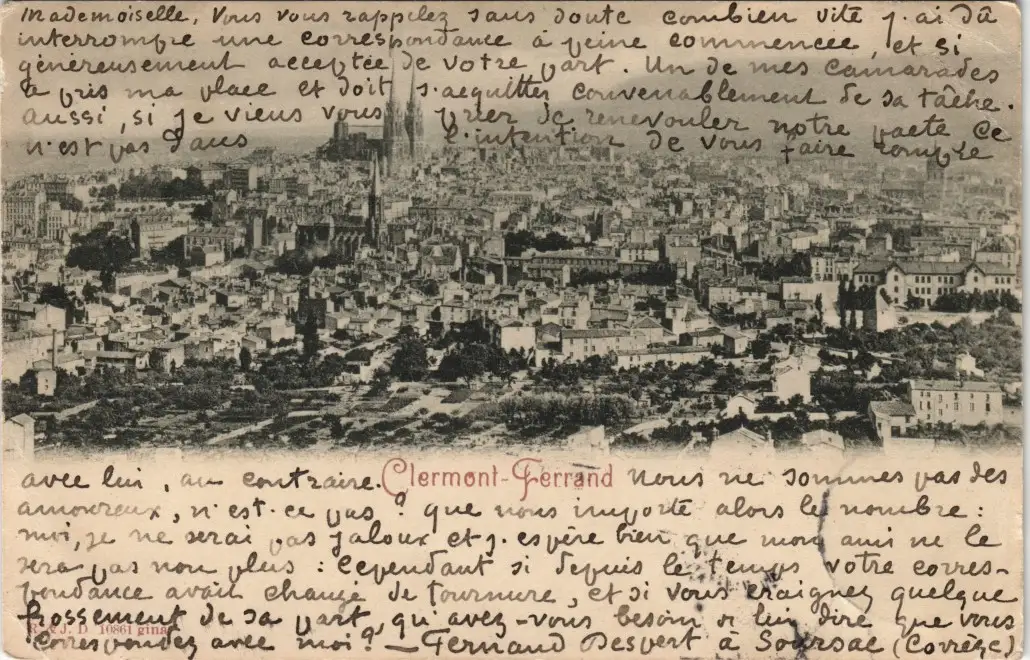 Mademoiselle, Vous vous rappelez sans doute combien vite j'ai dû
interrompre une correspondance à peine commencée, et si
généreusement acceptée de votre part. Un de mes camarades
a pris ma place et doit s'aquitter convenablement de sa tâche.
aussi, si je viens vous prier de renouveler notre pacte ce
n'est pas dans l'intention de vous faire rompre
avec lui, au contraire. Clermont-Ferrand Nous ne sommes pas des
amoureux, n'est-ce pas? que nous importe alors le nombre:
moi, je ne serai pas jaloux et j'espère bien que mon ami ne le
sera pas non plus: Cependant si depuis le temps votre corres-
pondance avait changé de tournure, et si vous craignez quelque
froissement de sa part, qu'avez-vous besoin de lui dire que vous
R. & J. D. 10861
correspondez avec moi? — Fernand Despert à Soursac (Corrèze)